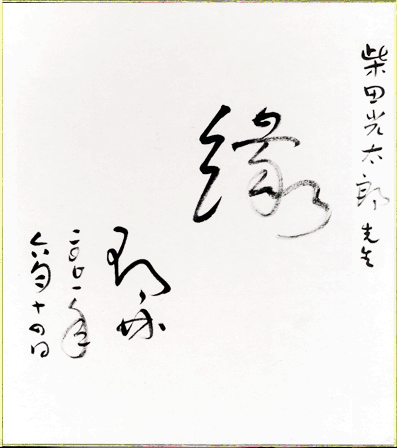 柴田光太郎先生
縁
二〇〇一年
六月十四日